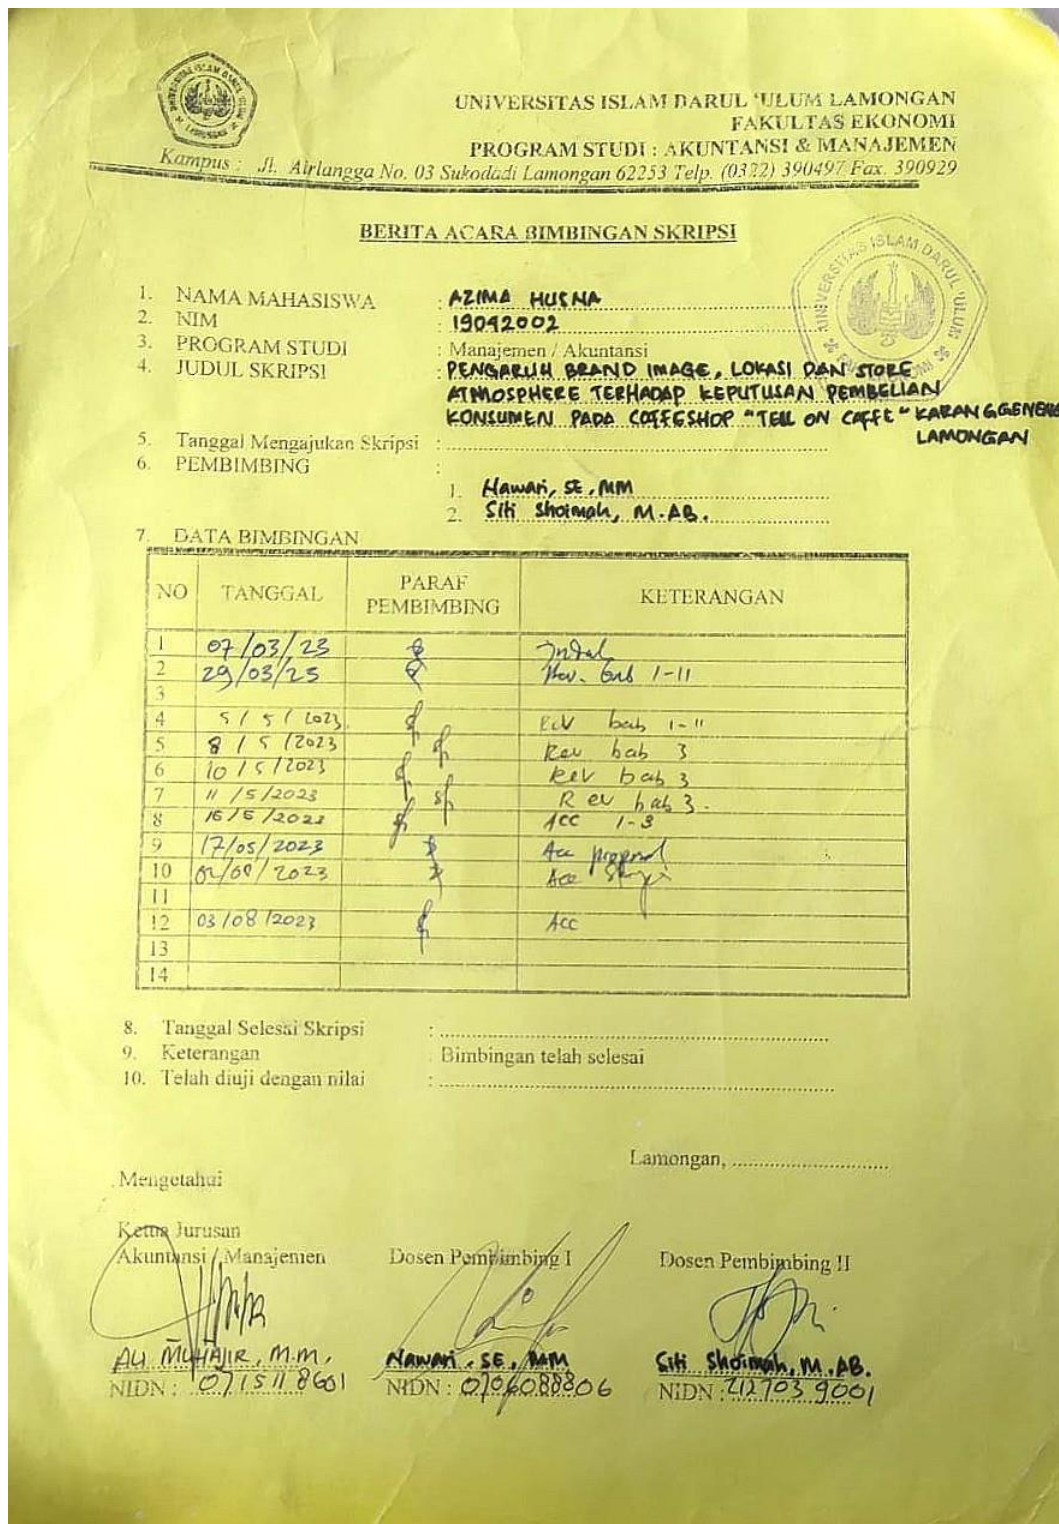 UNIVERSITAS ISLAM DARUL 'ULUM LAMONGAN
FAKULTAS EKONOMI
PROGRAM STUDI : AKUNTANSI & MANAJEMEN
Kampus : Jl. Airlangga No. 03 Sukodadi Lamongan 62253 Telp. (0322) 390497 Fax. 390929
BERITA ACARA BIMBINGAN SKRIPSI
UNIVERSITAS ISLAM DARUL 'ULUM
1. NAMA MAHASISWA : AZIMA HUSNA
2. NIM : 19042002
3. PROGRAM STUDI : Manajemen / Akuntansi
4. JUDUL SKRIPSI : PENGARUH BRAND IMAGE, LOKASI DAN STORE
ATMOSPHERE TERHADAP KEPUTUSAN PEMBELIAN
KONSUMEN PADA COFFESHOP "TELL ON CAFFE" KARANGGENENG
LAMONGAN
5. Tanggal Mengajukan Skripsi :
6. PEMBIMBING :
1. Hawari, SE, MM
2. Siti Shoimah, M.AB.
7. DATA BIMBINGAN
NO TANGGAL PARAF PEMBIMBING KETERANGAN
1 07/03/23
2 29/03/23 1-11
3
4 5/5/2023 Rev bab 1-11
5 8/5/2023 Rev bab 3
6 10/5/2023 Rev bab 3
7 11/5/2023 Rev bab 3.
8 16/5/2023 ACC 1-3
9 17/05/2023 Acc proposal
10 02/08/2023 Acc
11
12 03/08/2023 Acc
13
14
8. Tanggal Selesai Skripsi :
9. Keterangan : Bimbingan telah selesai
10. Telah diuji dengan nilai :
Lamongan,
Mengetahui
Ketua Jurusan
Akuntansi / Manajemen Dosen Pembimbing I Dosen Pembimbing II
ALI MUHAJIR, M.M. Hawari, SE, MM Siti Shoimah, M.AB.
NIDN : 0715118601 NIDN : 0706088806 NIDN : 2127039001